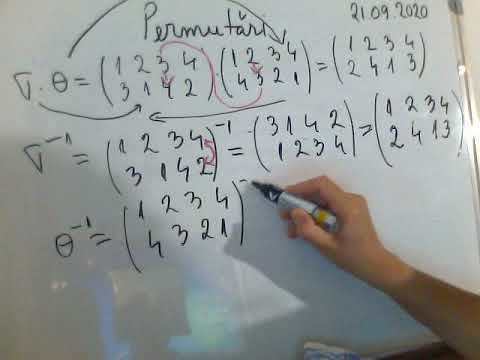 Permutări 21.09.2020
σ · θ = (1 2 3 4 / 3 1 4 2) · (1 2 3 4 / 4 3 2 1) = (1 2 3 4 / 2 4 1 3)
σ⁻¹ = (1 2 3 4 / 3 1 4 2)⁻¹ = (3 1 4 2 / 1 2 3 4) = (1 2 3 4 / 2 4 1 3)
θ⁻¹ = (1 2 3 4 / 4 3 2 1)⁻